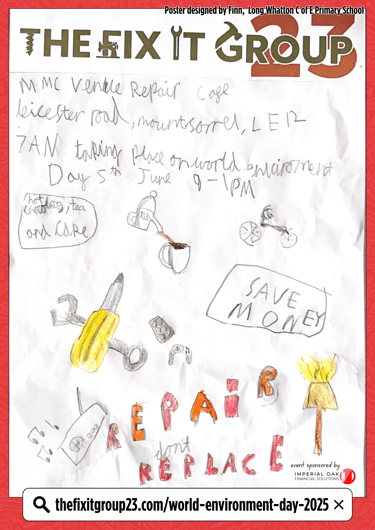 Poster designed by Finn, Long Whatton C of E Primary School
THE FIX IT GROUP
23
MMC Venue Repair Cafe
leicester road, mountsorrel, LE12
7AN taking place on world environment
Day 5th June 9-1PM
tea
and cake
SAVE
MONEY
REPAiR
dont
REPLACE
event sponsored by
IMPERIAL OAK
FINANCIAL SOLUTIONS
thefixitgroup23.com/world-environment-day-2025